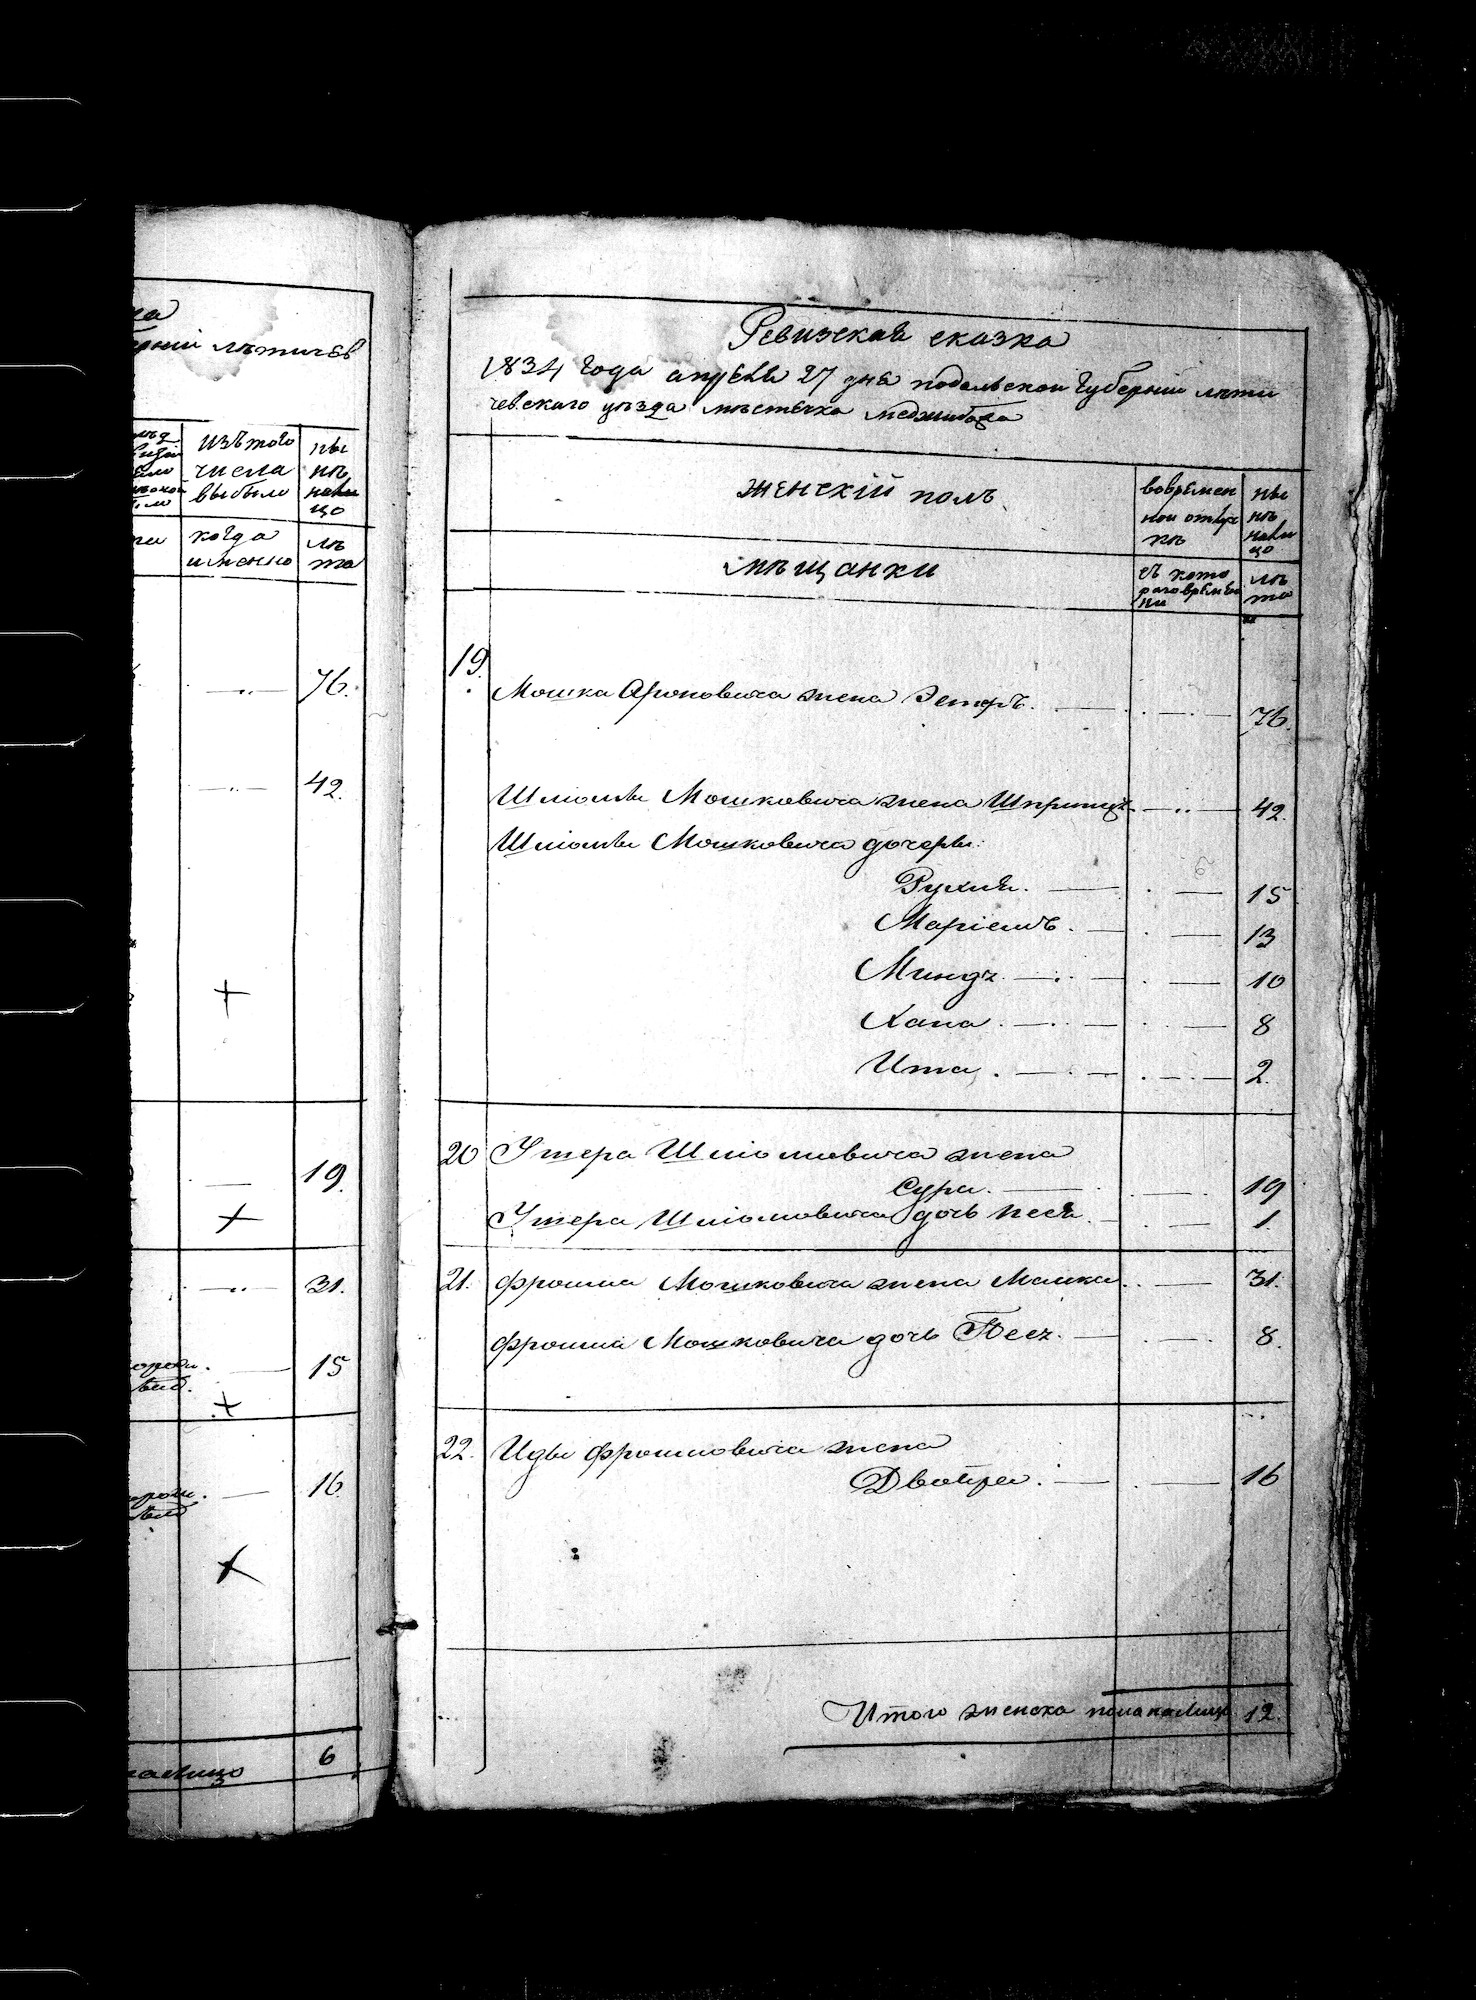 на
ерніи Летичев
изъ того
числа
выбыло
ны
нѣ
нали
цо
когда
именно
лѣ
та
76.
42.
19.
31.
15
16
налицо 6
Ревизская сказка
1834 года апреля 27 дня подольской Губерніи лети
чевскаго уѣзда мѣстечка меджибожа
женскій полъ
вовремен
ной отлуч
кѣ
ны
нѣ
нали
цо
мѣщанки
съ кото
раго времѣ
ни
лѣ
та
19. Мошка Ароновича жена Эстеръ. 76.
Шліомы Мошковича жена Шпринцъ 42.
Шліомы Мошковича дочери:
Рухля. 15
Маріемъ. 13
Миндъ. 10
Хана. 8
Ита. 2.
20 Шліомовича жена
Сура. 19
Шліомовича дочь песя. 1.
21. Фроима Мошковича жена Малка. 31.
Фроима Мошковича дочь 8.
22. Иды Фроимовича жена
Двойра. 16
Итого женска пола налицо 12.